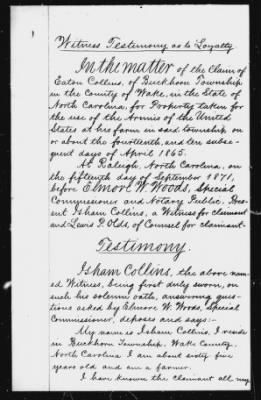 Witness Testimony as to Loyalty
In the matter of the Claim of
Eaton Collins, of Buckhorn Township
in the County of Wake, in the State of
North Carolina, for Property taken for
the use of the Armies of the United
States at his farm in said township on
or about the fourteenth, and ten subse-
quent days of April 1865.
At Raleigh, North Carolina, on
the fifteenth day of September 1871,
before Elmore W. Woods, Special
Commissioner and Notary Public. Pres-
ent Isham Collins, a Witness for claimant
and Lewis P. Olds, of Counsel for claimant.
Testimony.
Isham Collins, the above nam-
ed Witness, being first duly sworn, on
such his solemn oath, answering ques-
tions asked by Elmore W. Woods, Special
Commissioner, deposes and says:-
My name is Isham Collins. I reside
in Buckhorn Township, Wake County,
North Carolina I am about sixty five
years old and am a farmer.
I have known the claimant all my